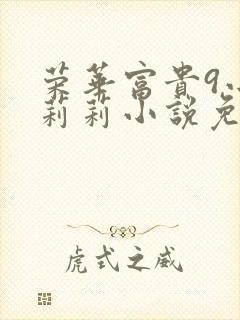 荣華富貴9.
莉莉小說免
虎式之威